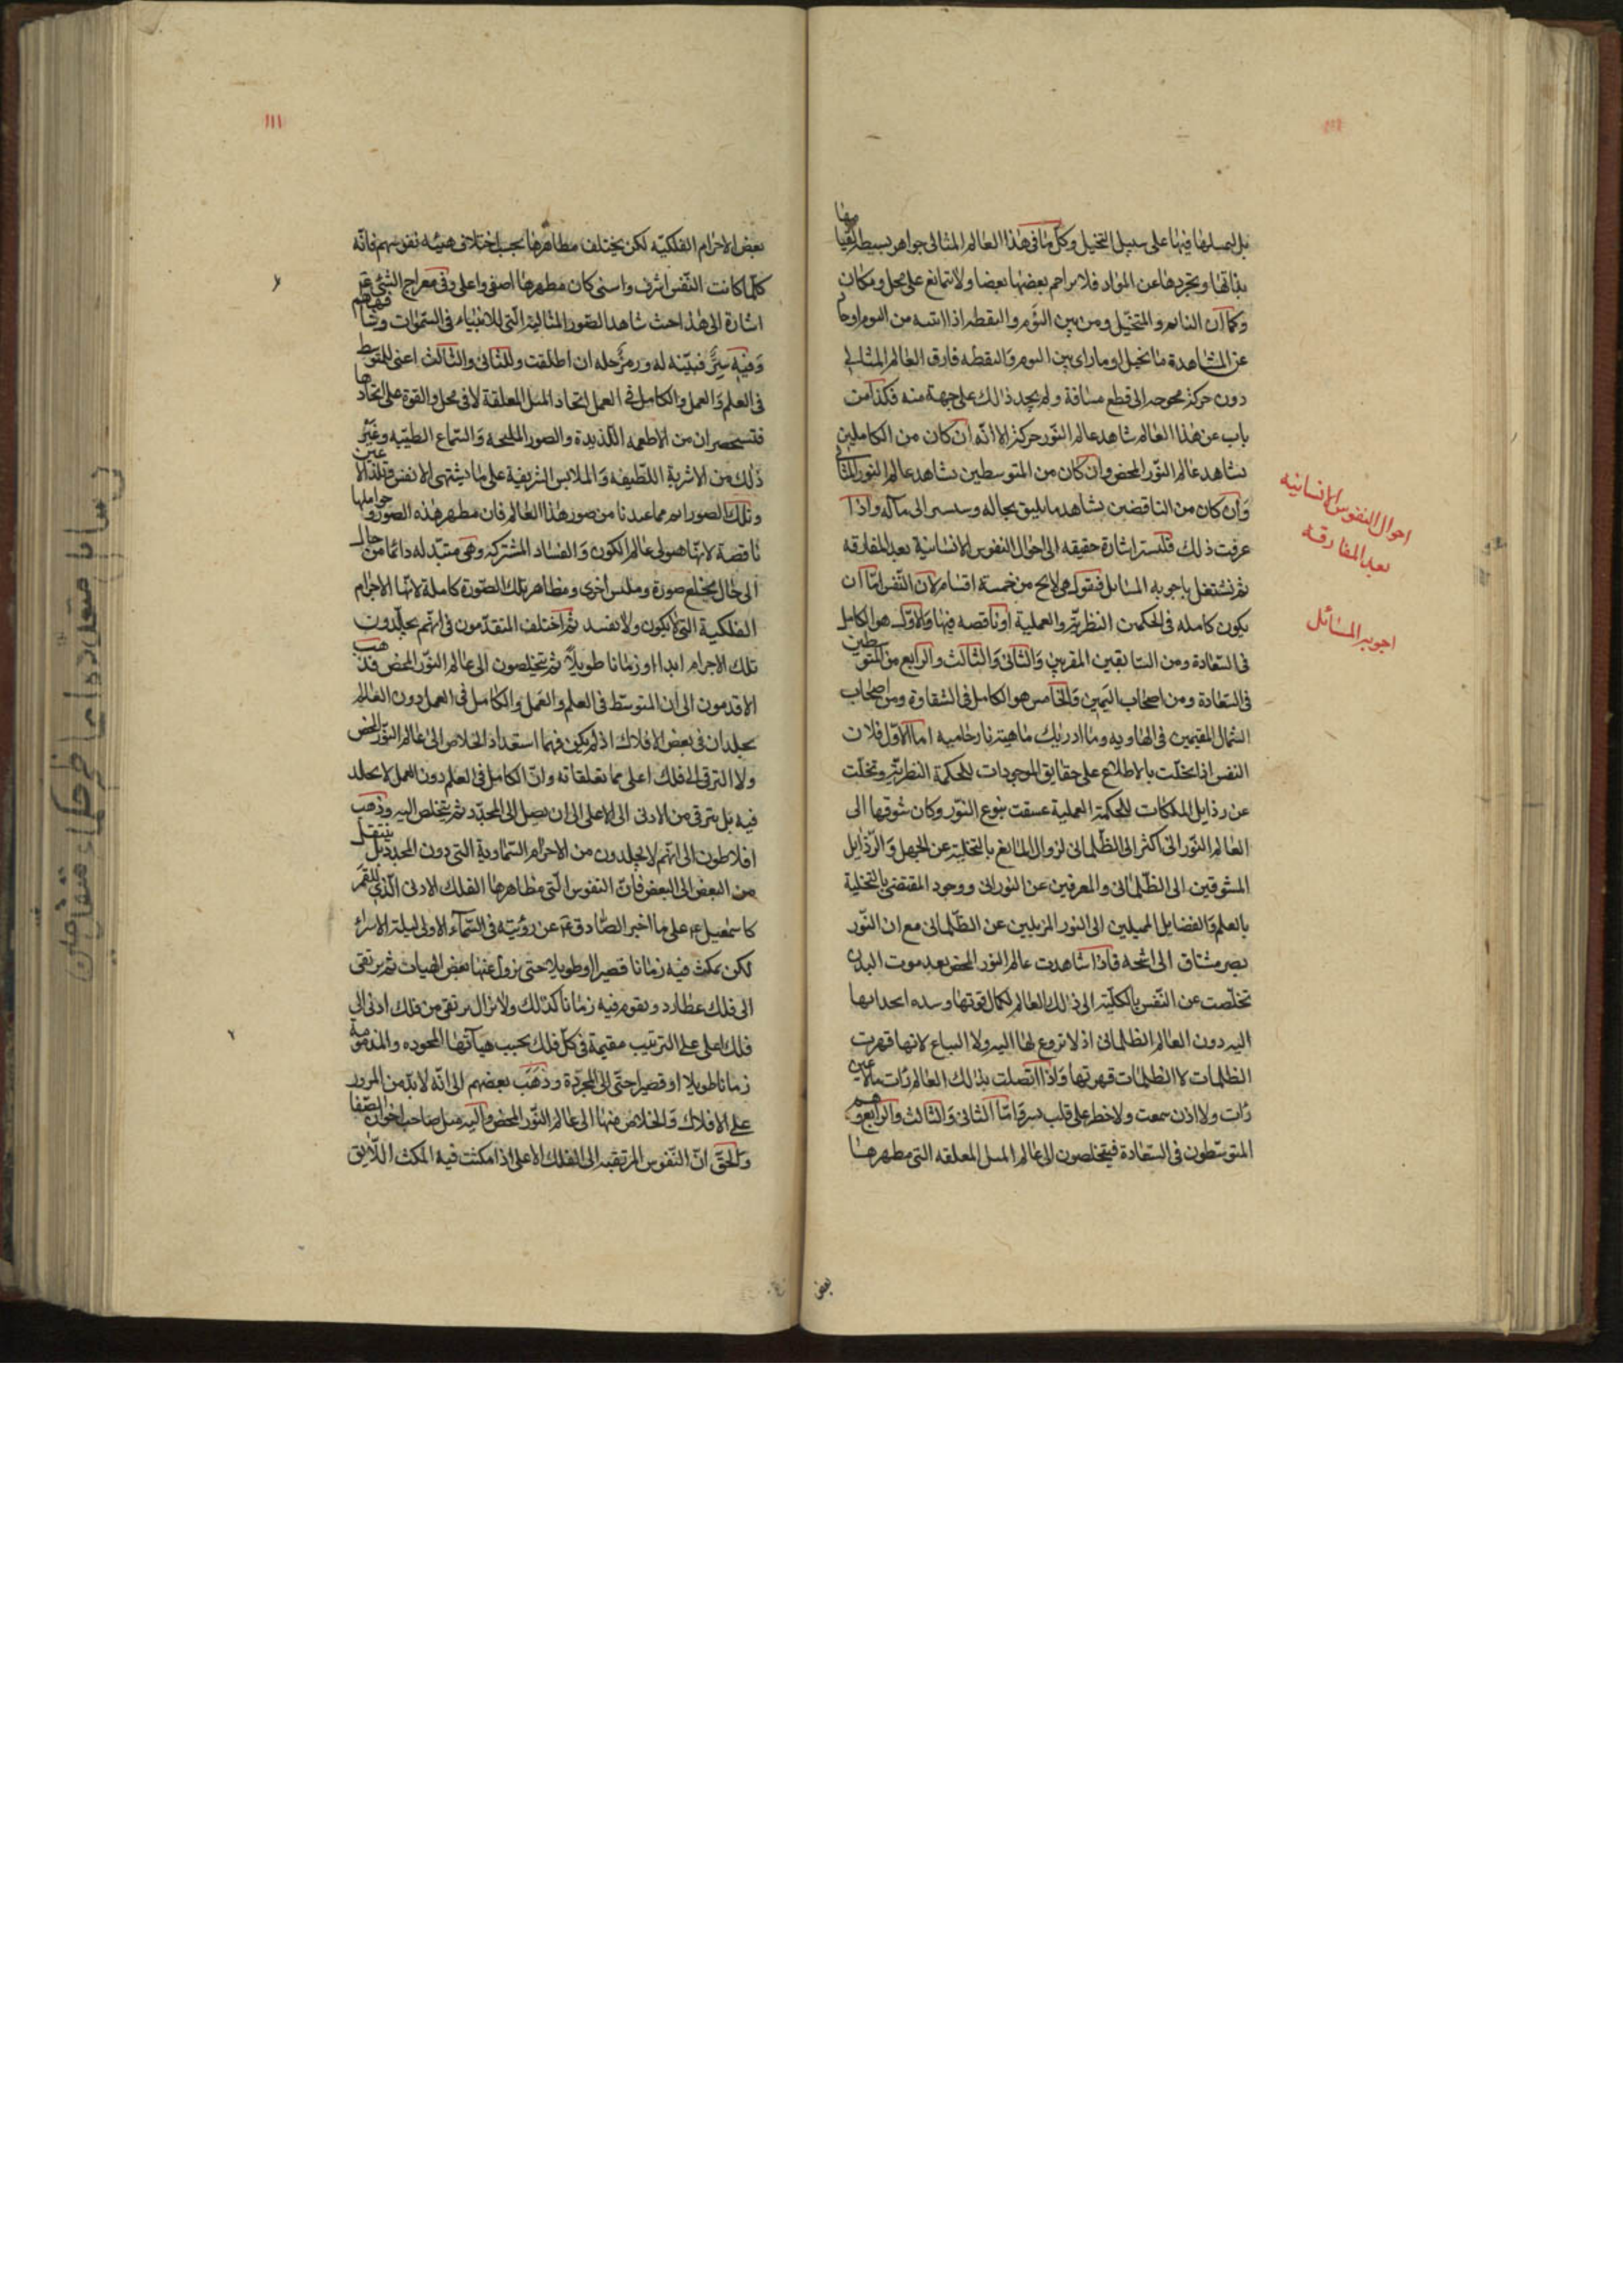 بل لحصولها فيها على سبيل التخيل وكل ما في هذا العالم المثالي جواهر بسيطة لقيامها
بذاتها وتجردها عن المواد فلا يزاحم بعضها بعضا ولا تمانع على محل ومكان
وكما ان النائم والمتخيل ومن بين النوم واليقظة اذا انتبه من النوم او حال
عن المشاهدة ما يتخيل او ما راى بين النوم واليقظة فارق العالم المثالي
دون حركة محوجة الى قطع مسافة ولم يجد ذلك على جهة منه فكذا من
باب عن هذا العالم شاهد عالم النور حركة الا انه ان كان من الكاملين
يشاهد عالم النور المحض وان كان من المتوسطين يشاهد عالم النور المثالي
وان كان من الناقصين يشاهد ما يليق بحاله وسيسير الى مآله واذا
عرفت ذلك فلنشر اشارة حقيقه الى احوال النفوس الانسانية بعد المفارقه
ثم نشتغل باجوبه المسائل فنقول هي لا يخ من خمسة اقسام لان النفس اما ان
يكون كامله في الحكمتين النظرية والعملية او ناقصه فيها والاول هو الكامل
في السعادة ومن السابقين المقربين والثاني والثالث والرابع من المتوسطين
في السعادة ومن اصحاب اليمين والخامس هو الكامل في الشقاوة ومن اصحاب
الشمال المقيمين في الهاويه وما ادريك ماهيه نار حاميه اما الاول فلان
النفس اذا تحلت بالاطلاع على حقايق الموجودات للحكمة النظرية وتخلت
عن رذايل الملكات للحكمة العملية عشقت ينبوع النور وكان شوقها الى
العالم النوراني اكثر الى الظلماني لزوال المانع بالتخلية عن الجهل والرذايل
المشوقين الى الظلماني والمعرفين عن النوراني ووجود المقتضي بالتحلية
بالعلم والفضايل المميلين الى النور المزيلين عن الظلماني مع ان النور
بصر مشتاق الى اشخه فاذا شاهدت عالم النور المحض بعد موت البدن
تخلصت عن النفس بالكلية الى ذلك العالم لكمال قوتها وشده انجذابها
اليه دون العالم الظلماني اذ لا نزوع لها اليه ولا اتباع لانها قهرت
الظلمات لا الظلمات قهرتها واذا اتصلت بذلك العالم رات ما لا عين
رات ولا اذن سمعت ولا خطر على قلب بشر واما الثاني والثالث والرابع وهم
المتوسطون في السعادة فيتخلصون الى عالم المثل المعلقه التي مظهرها
بعض
احوال النفوس الانسانيه
بعد المفارقه
اجوبه المسائل
١١١
بعض الاجرام الفلكيه لكن يختلف مظاهرها بحسب اختلاف هيئه نفوسهم فانه
كلما كانت النفس اشرف واسنى كان مظهرها اصفى واعلى وفي معراج النبي
اشارة الى هذا حيث شاهد الصور المثالية التي للانبياء في السموات وشافههم
وفيه سر فبينه له ورمز حله ان اطلقت وللثاني والثالث اعني للمتوسط
في العلم والعمل والكامل في العمل اتحاد المثل المعلقة لا في محل والقوة على اتحادها
فتستحضران من الاطعمه اللذيذة والصور المليحه والسماع الطيبه وغير
ذلك من الاشربة اللطيفه والملابس الشريفة على ما تشتهي الانفس وتلذ الاعين
وتلك الصور اتم مما عندنا من صور هذا العالم فان مظهر هذه الصور وحواملها
ناقصة لانها هيولى عالم الكون والفساد المشتركة وهي متبدله دائما من حال
الى حال يخلع صورة وملبس اخرى ومظاهر تلك الصورة كاملة لانها الاجرام
الفلكية التي لا يكون ولا تفسد ثم اختلف المتقدمون في انهم يخلدون
تلك الاجرام ابدا او زمانا طويلا ثم يتخلصون الى عالم النور المحض فذهب
الاقدمون الى ان المتوسط في العلم والعمل والكامل في العمل دون العلم
يخلدان في بعض الافلاك اذ لم يكن فيهما استعداد الخلاص الى عالم النور المحض
ولا الترقي الى فلك اعلى مما تعلقا به وان الكامل في العلم دون العمل لا يخلد
فيه بل يترقى من الادنى الى الاعلى الى ان يصل الى المحدد ثم يتخلص اليه وذهب
افلاطون الى انهم لا يخلدون من الاجرام السماوية التي دون المحدد بل ينتقل
من البعض الى البعض فان النفوس التي مظاهرها الفلك الادنى الذي للقمر
كاسمعيل ع على ما اخبر الصادق ع عن رؤيته في السماء الاولى ليلة الاسراء
لكن يمكث فيه زمانا قصيرا او طويلا حتى يزول عنها بعض الهيات ثم يرتقى
الى فلك عطارد ويقوم فيه زمانا كذلك ولا يزال يرتقى من فلك ادنى الى
فلك اعلى على الترتيب مقيمة في كل فلك بحسب هيآتها المحموده والمذمومة
زمانا طويلا او قصيرا حتى الى المجردة وذهب بعضهم الى انه لا بد من المرور
على الافلاك والخلاص منها الى عالم النور المحض واليه ميل صاحب اخوان الصفا
والحق ان النفوس المرتقيه الى الفلك الاعلى اذا مكثت فيه المكث اللايق